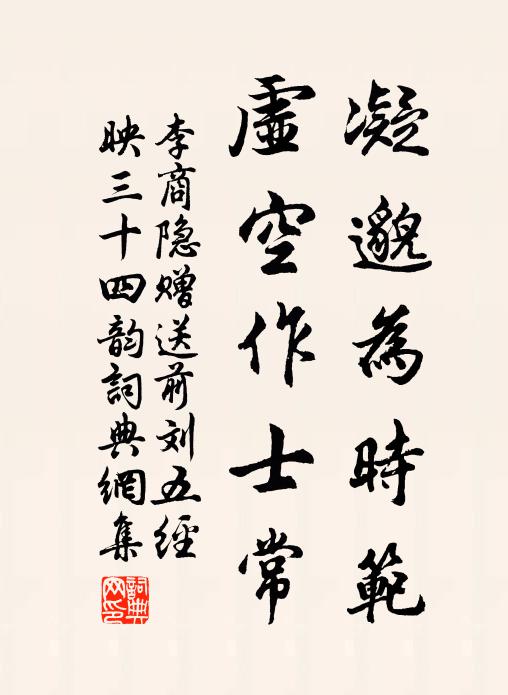 凝邈為時範
虛空作士常
李商隐赠送前刘五經
映三十四韵詞典網集
詞典網印